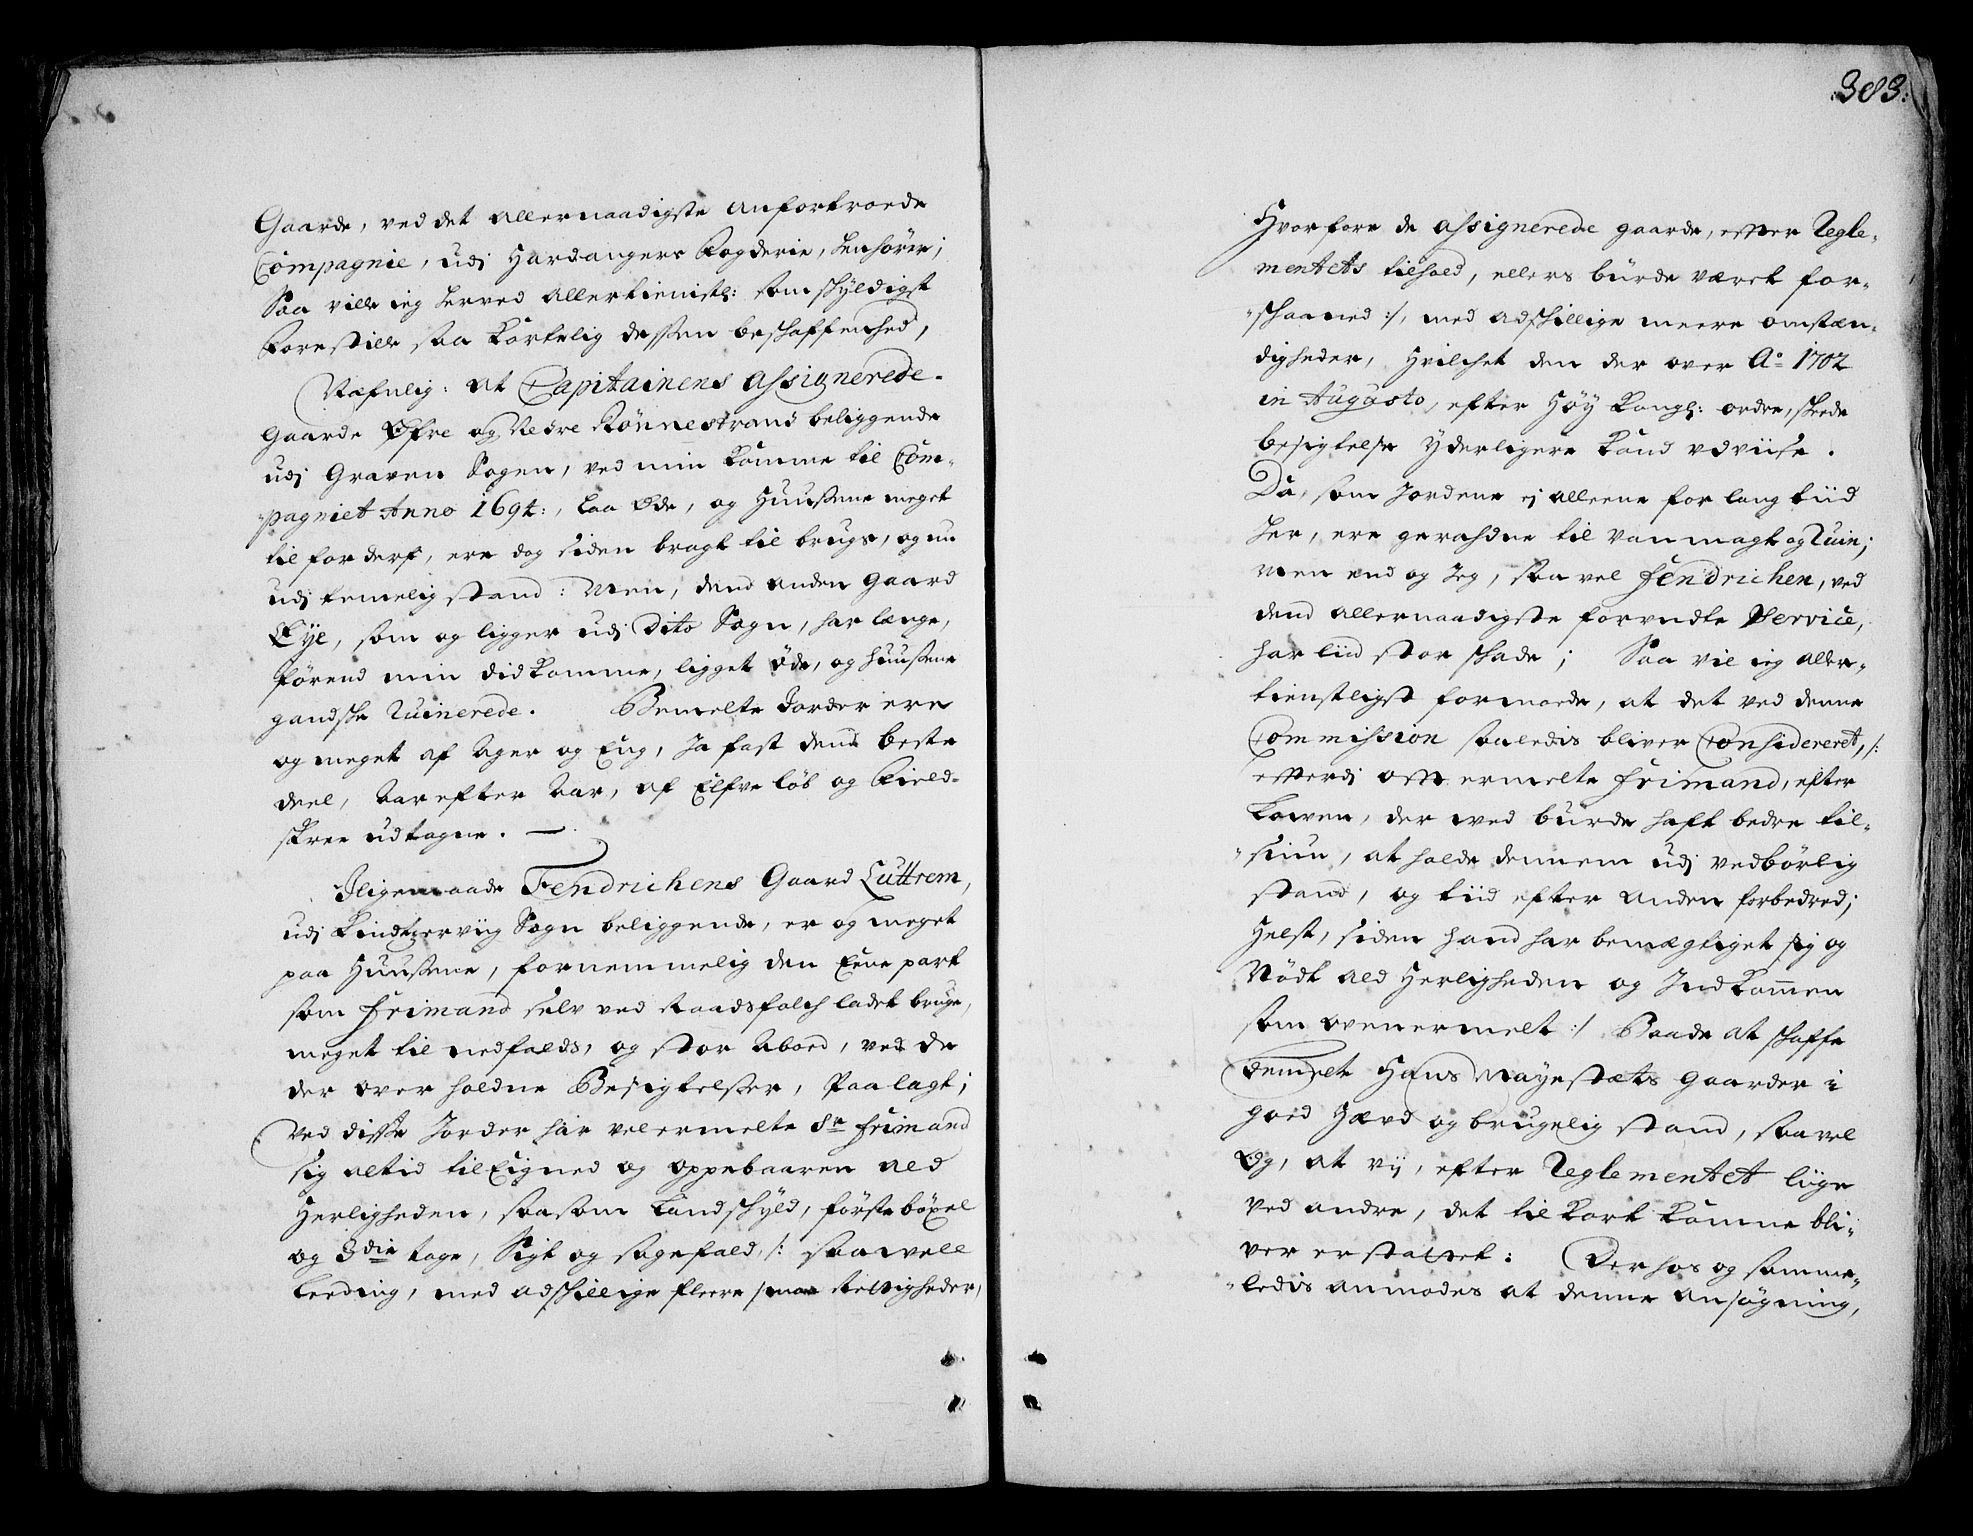 Gaarde, ved det allernaadigste anfortroede
Compagnie, udj Hardangers Fogderie, henhörer;
Saa ville ieg herved allertienistl: som skyldigst
Forestille saa kortelig dessen beschaffenhed,
Næfnlig: at Capitainens assignerede
gaarde Øfre og Nedre Rønnestrand beliggende
udj Graven Sogen, ved min komme til Com-
pagniet Anno 1694:, laa øde, og Huussene meget
til forderf, ere dog siden bragt til brugs, og nu
udj temelig stand: Men, dend anden gaard
Eye, som og ligger udj dito Sogn, har længe,
förend min did komme, ligget öde, og huussene
gandske Ruinerede. Bemelte Jorder ere
og meget af Ager og Eng, Ja fast dend beste
deel, Aar efter Aar, af Elfve löb og Field-
skree udtagne. —
Iligemaade Fendrichens Gaard Luttrem,
udj Kindtzerviig Sogn beliggende, er og meget
paa Huussene, fornemmelig den Eene part
som Frimand selv ved Raadsfolch ladet bruge,
meget til nedfalds, og stor Aboed, ved de
der over holdne Besigtelsser, Paalagt;
Ved disse Jorder har velermelte Sr Frimand
sig altid tilEigned og oppebaaren ald
Herligheden, saasom Landskyld, försteböxel
og 3die tage, Sigt og sagefald, /: saavell
Leeding, med adskillige fleere smaa Rettigheder,
303:
Hvorfore de assignerede gaarde, efter Regle-
mentets tilhold, ellers burde været for-
skaaned :/, med adskillige meere omstæn-
digheder, Hvilchet den der over Ao 1702
in Augusto, efter Höy Kongl: ordre, skeede
besigtelse yderligere kand udviise.
Da, som Jordene ej alleene for lang tiid
her, ere geraadne til vanmagt og Ruin;
men end og Jeg, saavel Fendrichen, ved
dend allernaadigste forundte Service,
har liid stor skade; Saa vil ieg aller-
tienstligst formoede, at det ved denne
Commission saaledis bliver Considereret, /:
efterdj oftermelte Frimand, efter
Lowen, der med burde haft bedre til-
siun, at holde dennem udj vedbörlig
stand, og tiid efter anden forbedred;
Helst, siden hand har bemægtiget sig og
Nödt ald Herligheden og Indkommen
som ovenermelt :/ Baade at skaffe
bemelte Hans Mayestæts gaarder i
goed Hævd og brugelig stand, saavel
Og, at vij, efter Reglementet liige
ved andre, det til kort komne bli-
ver erstattet: Derhos og samme-
ledis anmodes at denne ansögning,